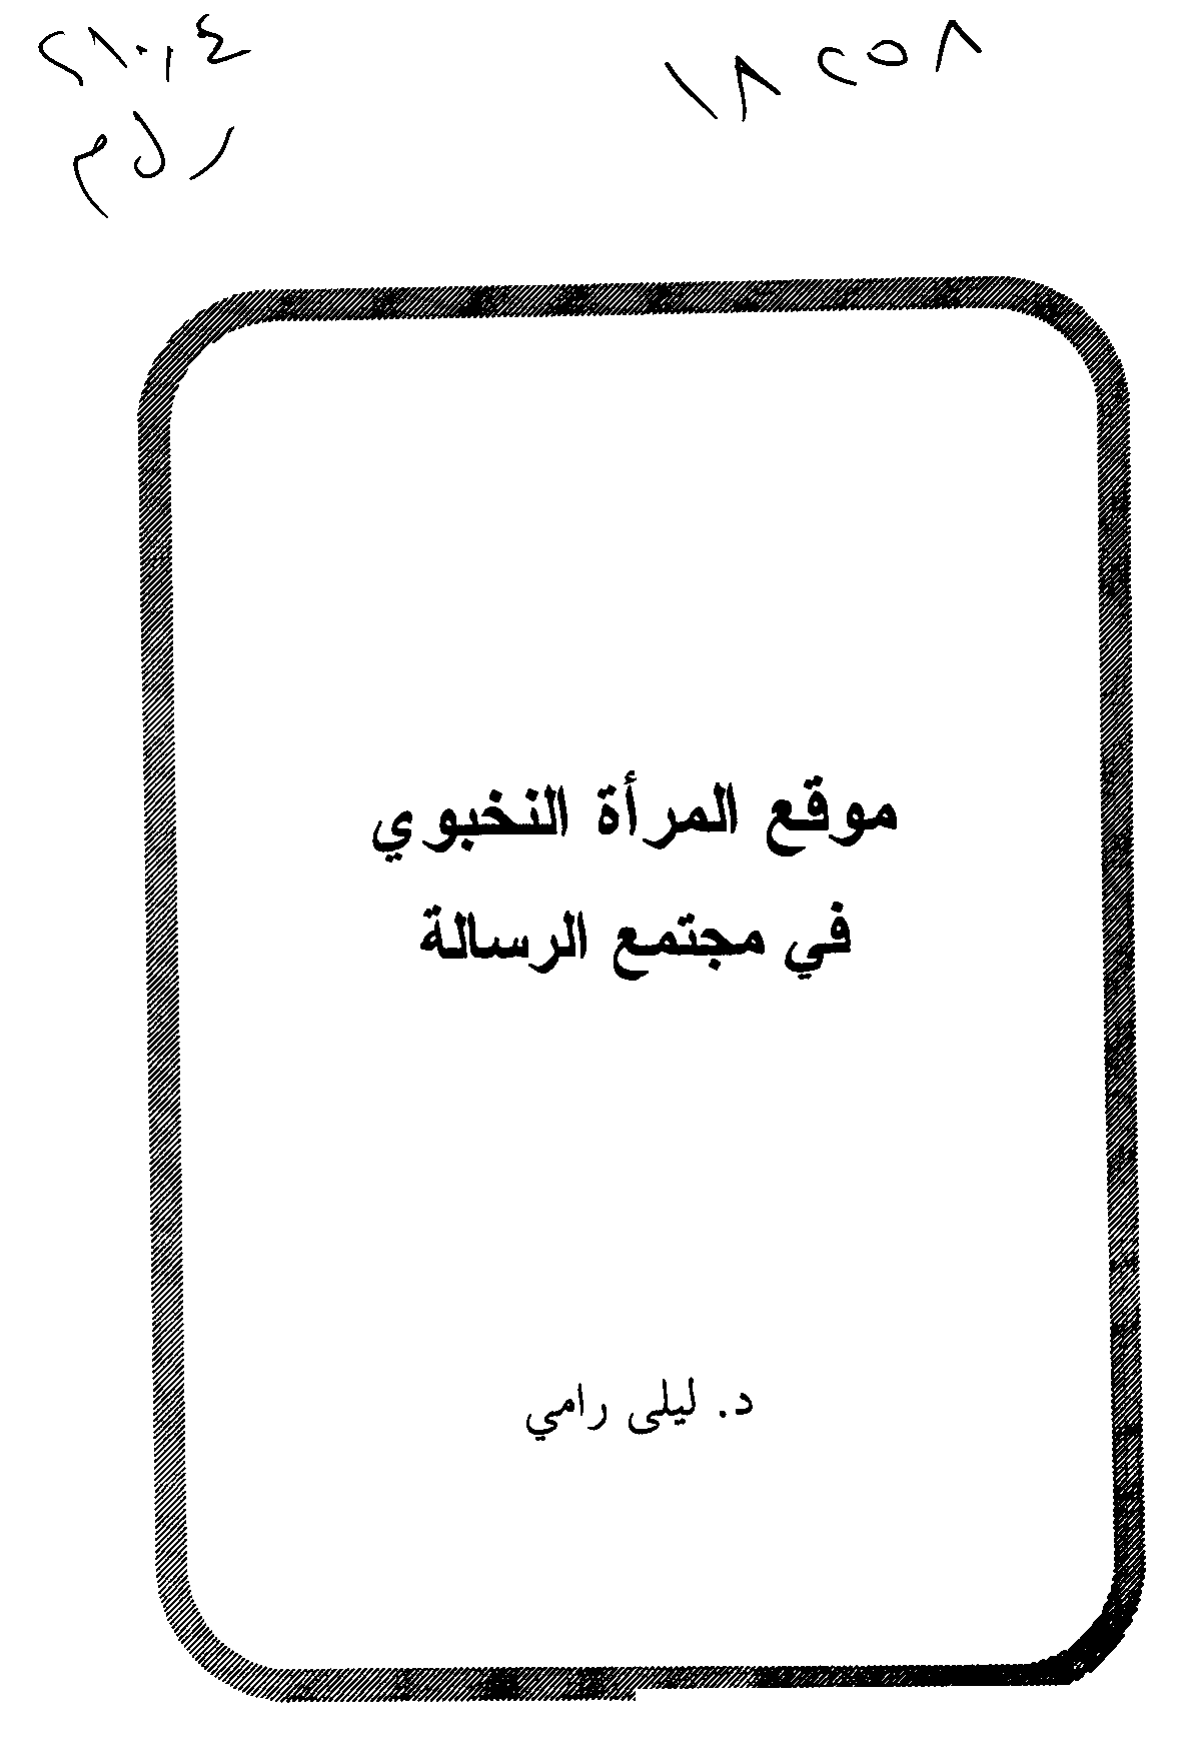 ١٨٢٥٨
ر ل م
موقع المرأة النخبوي
في مجتمع الرسالة
د. ليلى رامي